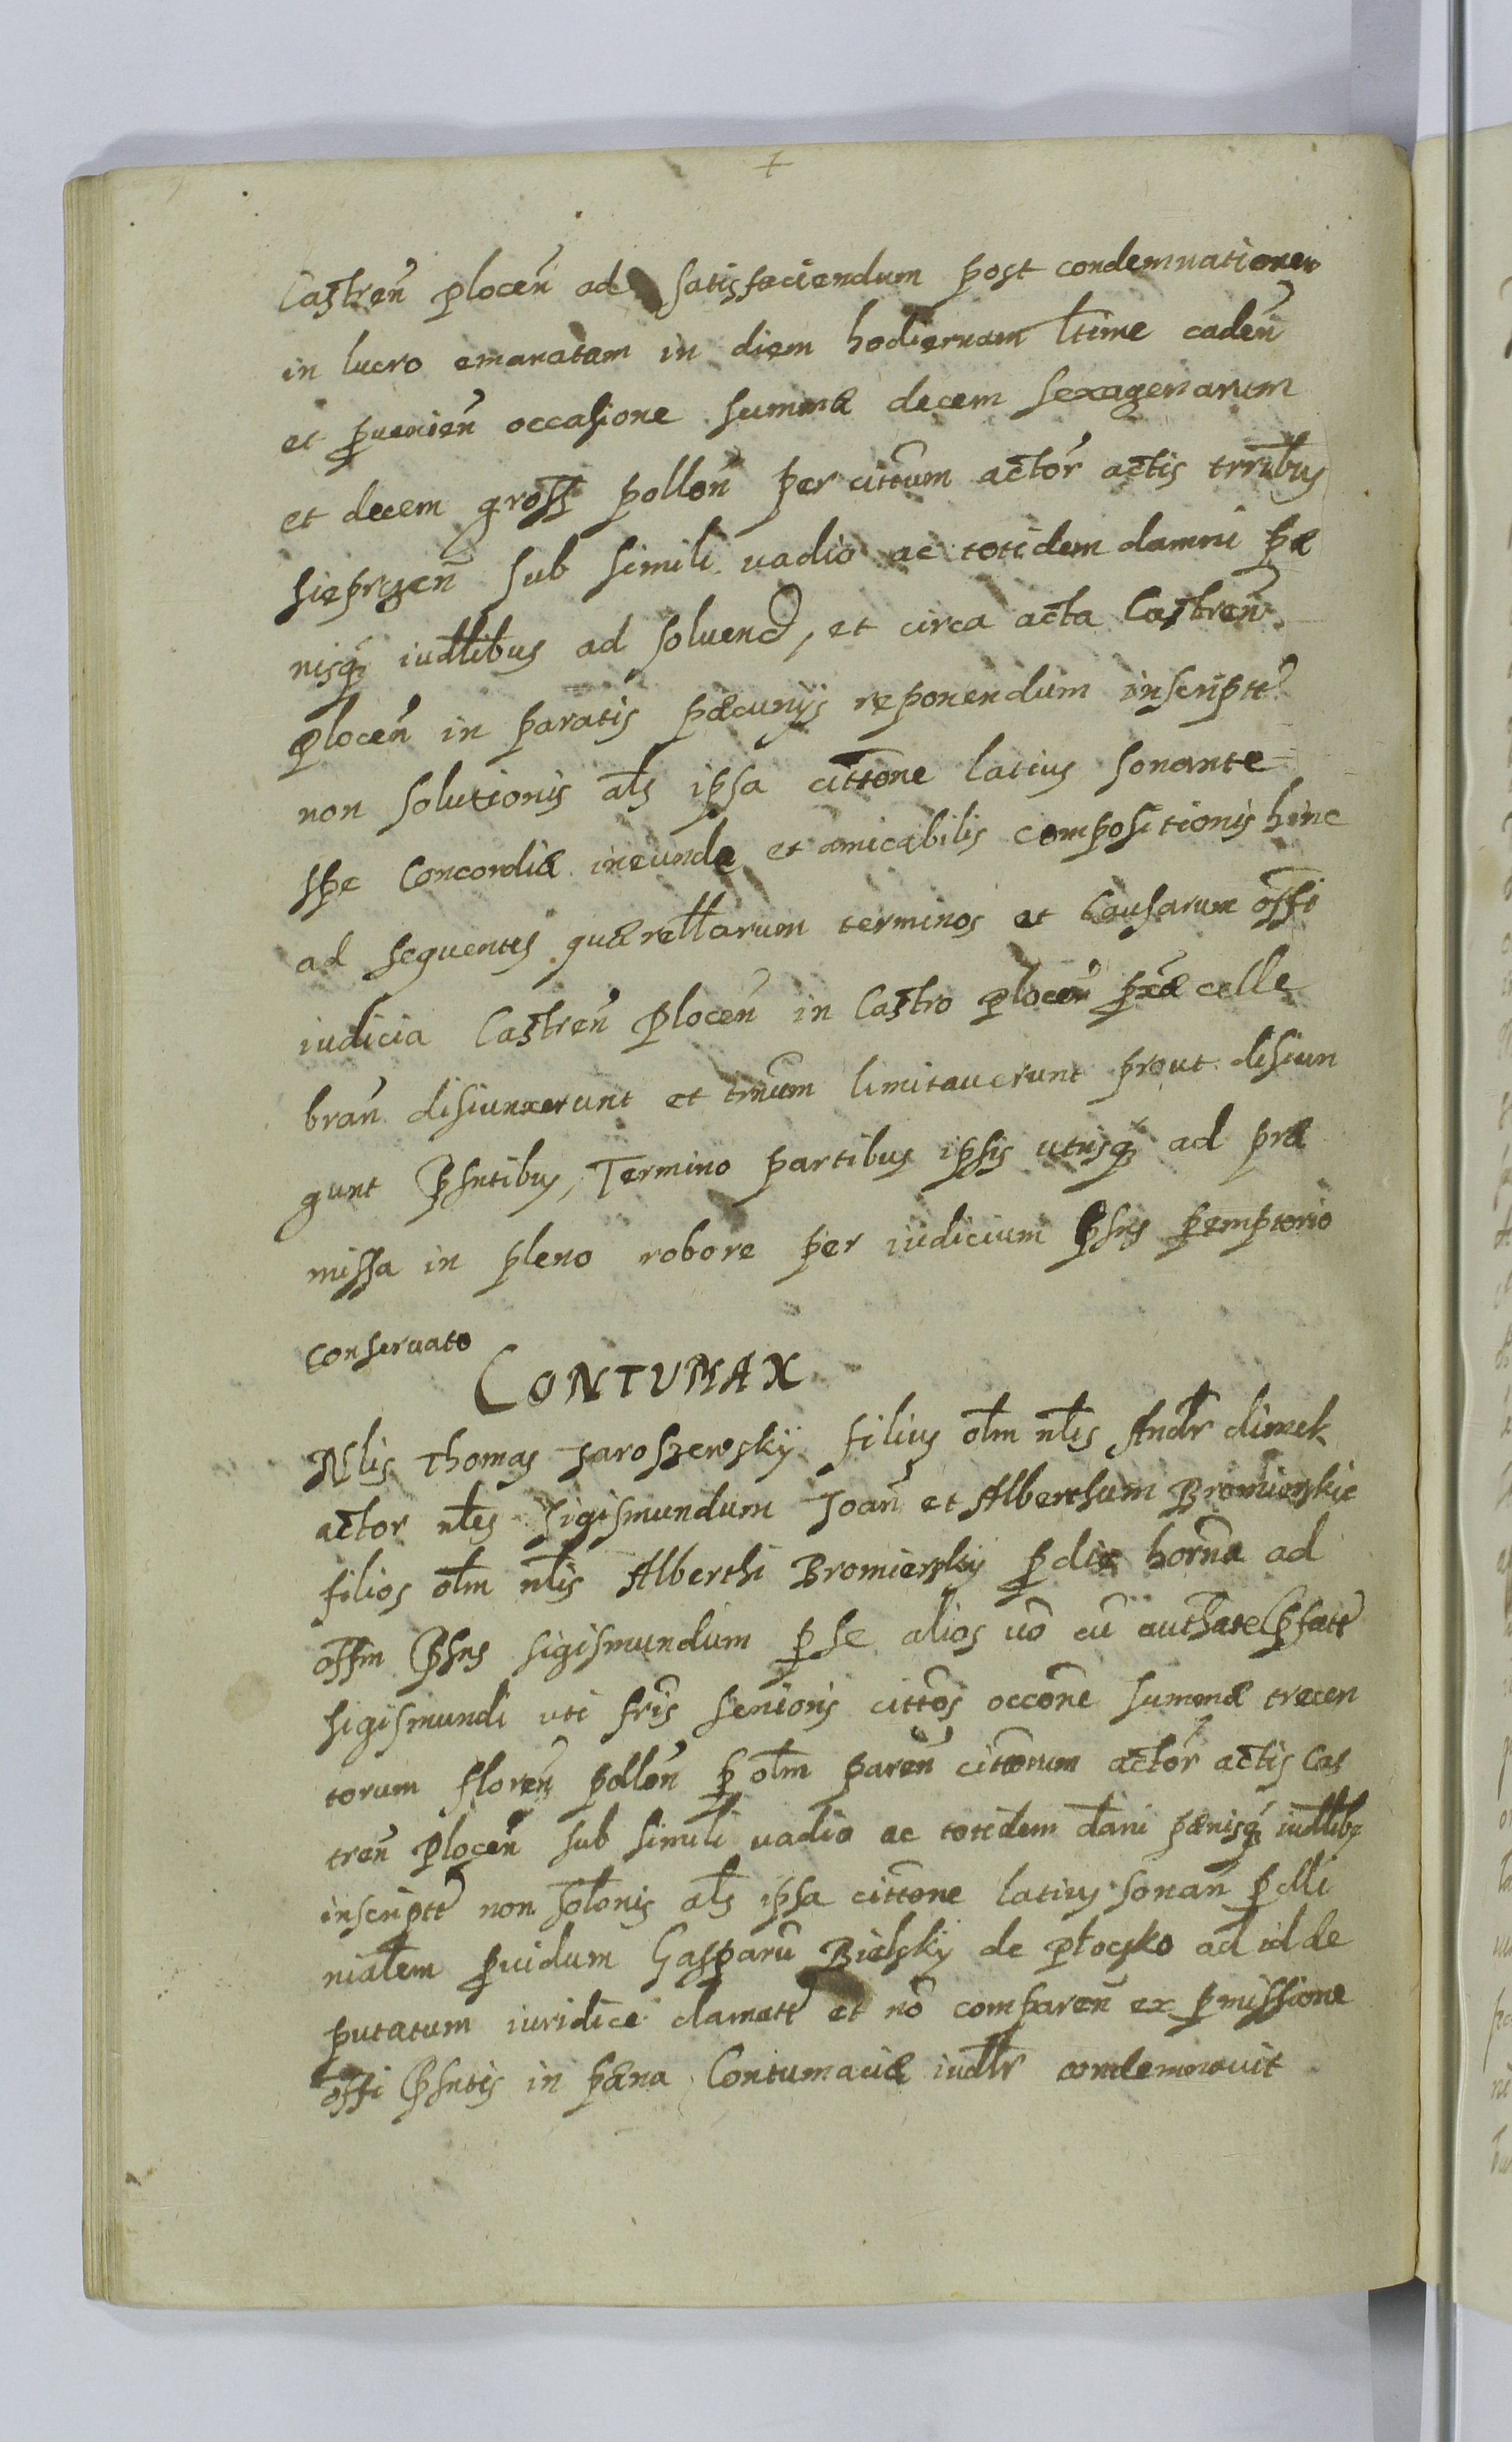 Castren̄ plocen̄ ad satisfaciendum post condemnationem
in lucro emanatam in diem hodiernam lt̄ime caden̄
et p̱uenien̄ occasione summæ decem sexagenarum
et decem gross pollon̄ per cittum actōr actis trr̄ibus
sieprzen̄ sub simili vadio ac totidem damni pæ
nisq̨ iudl̄ibus ad soluend, et circa acta Castren̄
plocen̄ in paratis pæcunijs reponendum inscriptt
non solutionis al̄s ipsa citt̄one latius sonante
spe Concordiæ ineundę et amicabilis compositionis hinc
ad sequentes quærellarum terminos et Causarum offī
iudicia Castren̄ Plocen̄ in Castro plocen̄ p̱xæ celle
bran̄ disiunxerunt et trm̄um limitauerunt prout disiun
gunt P̱sntibus, Termino partibus ipsis utrisq̨ ad præ
missa in pleno robore per iudicium P̱sns p̱emptorio
conseruato
CONTUMAX
Nlis Thomas Jaroszewskÿ filius ol̄m nl̄is Andr̄ dimek
actor nl̄es Sigismundum Joan̄ et Alberthum Bromierskie
filios ol̄m nl̄is Alberthi Bromierskÿ p̱ die horn̄a ad
offm P̱sns sigismundum p̱ se alios vō cū authatē P̱fatt
sigismundi uti frīs senioris cittōs occōne summæ trecen
torum floren̄ pollon̄ p̱ ol̄m paren̄ cittorum actōr actis Cas
tren̄ Plocen̄ sub simili vadio ac totidem dan̄i pænisq̨ iudl̄ibꝫ
inscriptt non sol̄onis al̄s ipsa citt̄one latius sonan̄ p̱ Mi
nial̄em p̱uidum Gasparū Bielskÿ de płocsko ad id de
putatum iuridice clamatt et nō comparen̄ ex p̱missione
offī P̱sntis in pæna Contumaciæ iudl̄r condemnauit